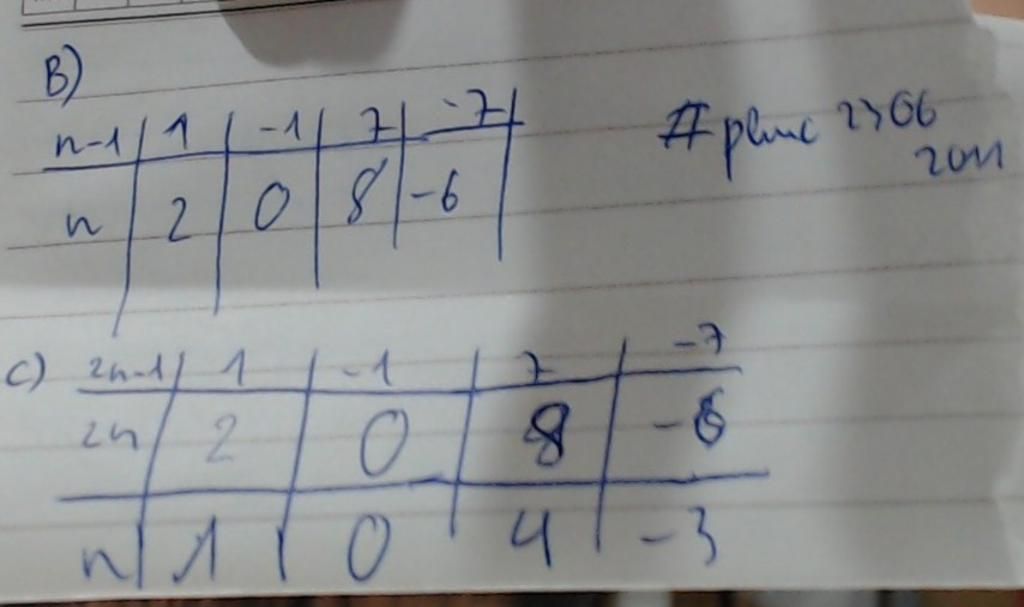 B)
n-1 | 1 | -1 | 7 | -7 |
n | 2 | 0 | 8 | -6 |
#phuc 2306
2011
C) 2n-1 | 1 | -1 | 7 | -7
2n | 2 | 0 | 8 | -6
n | 1 | 0 | 4 | -3